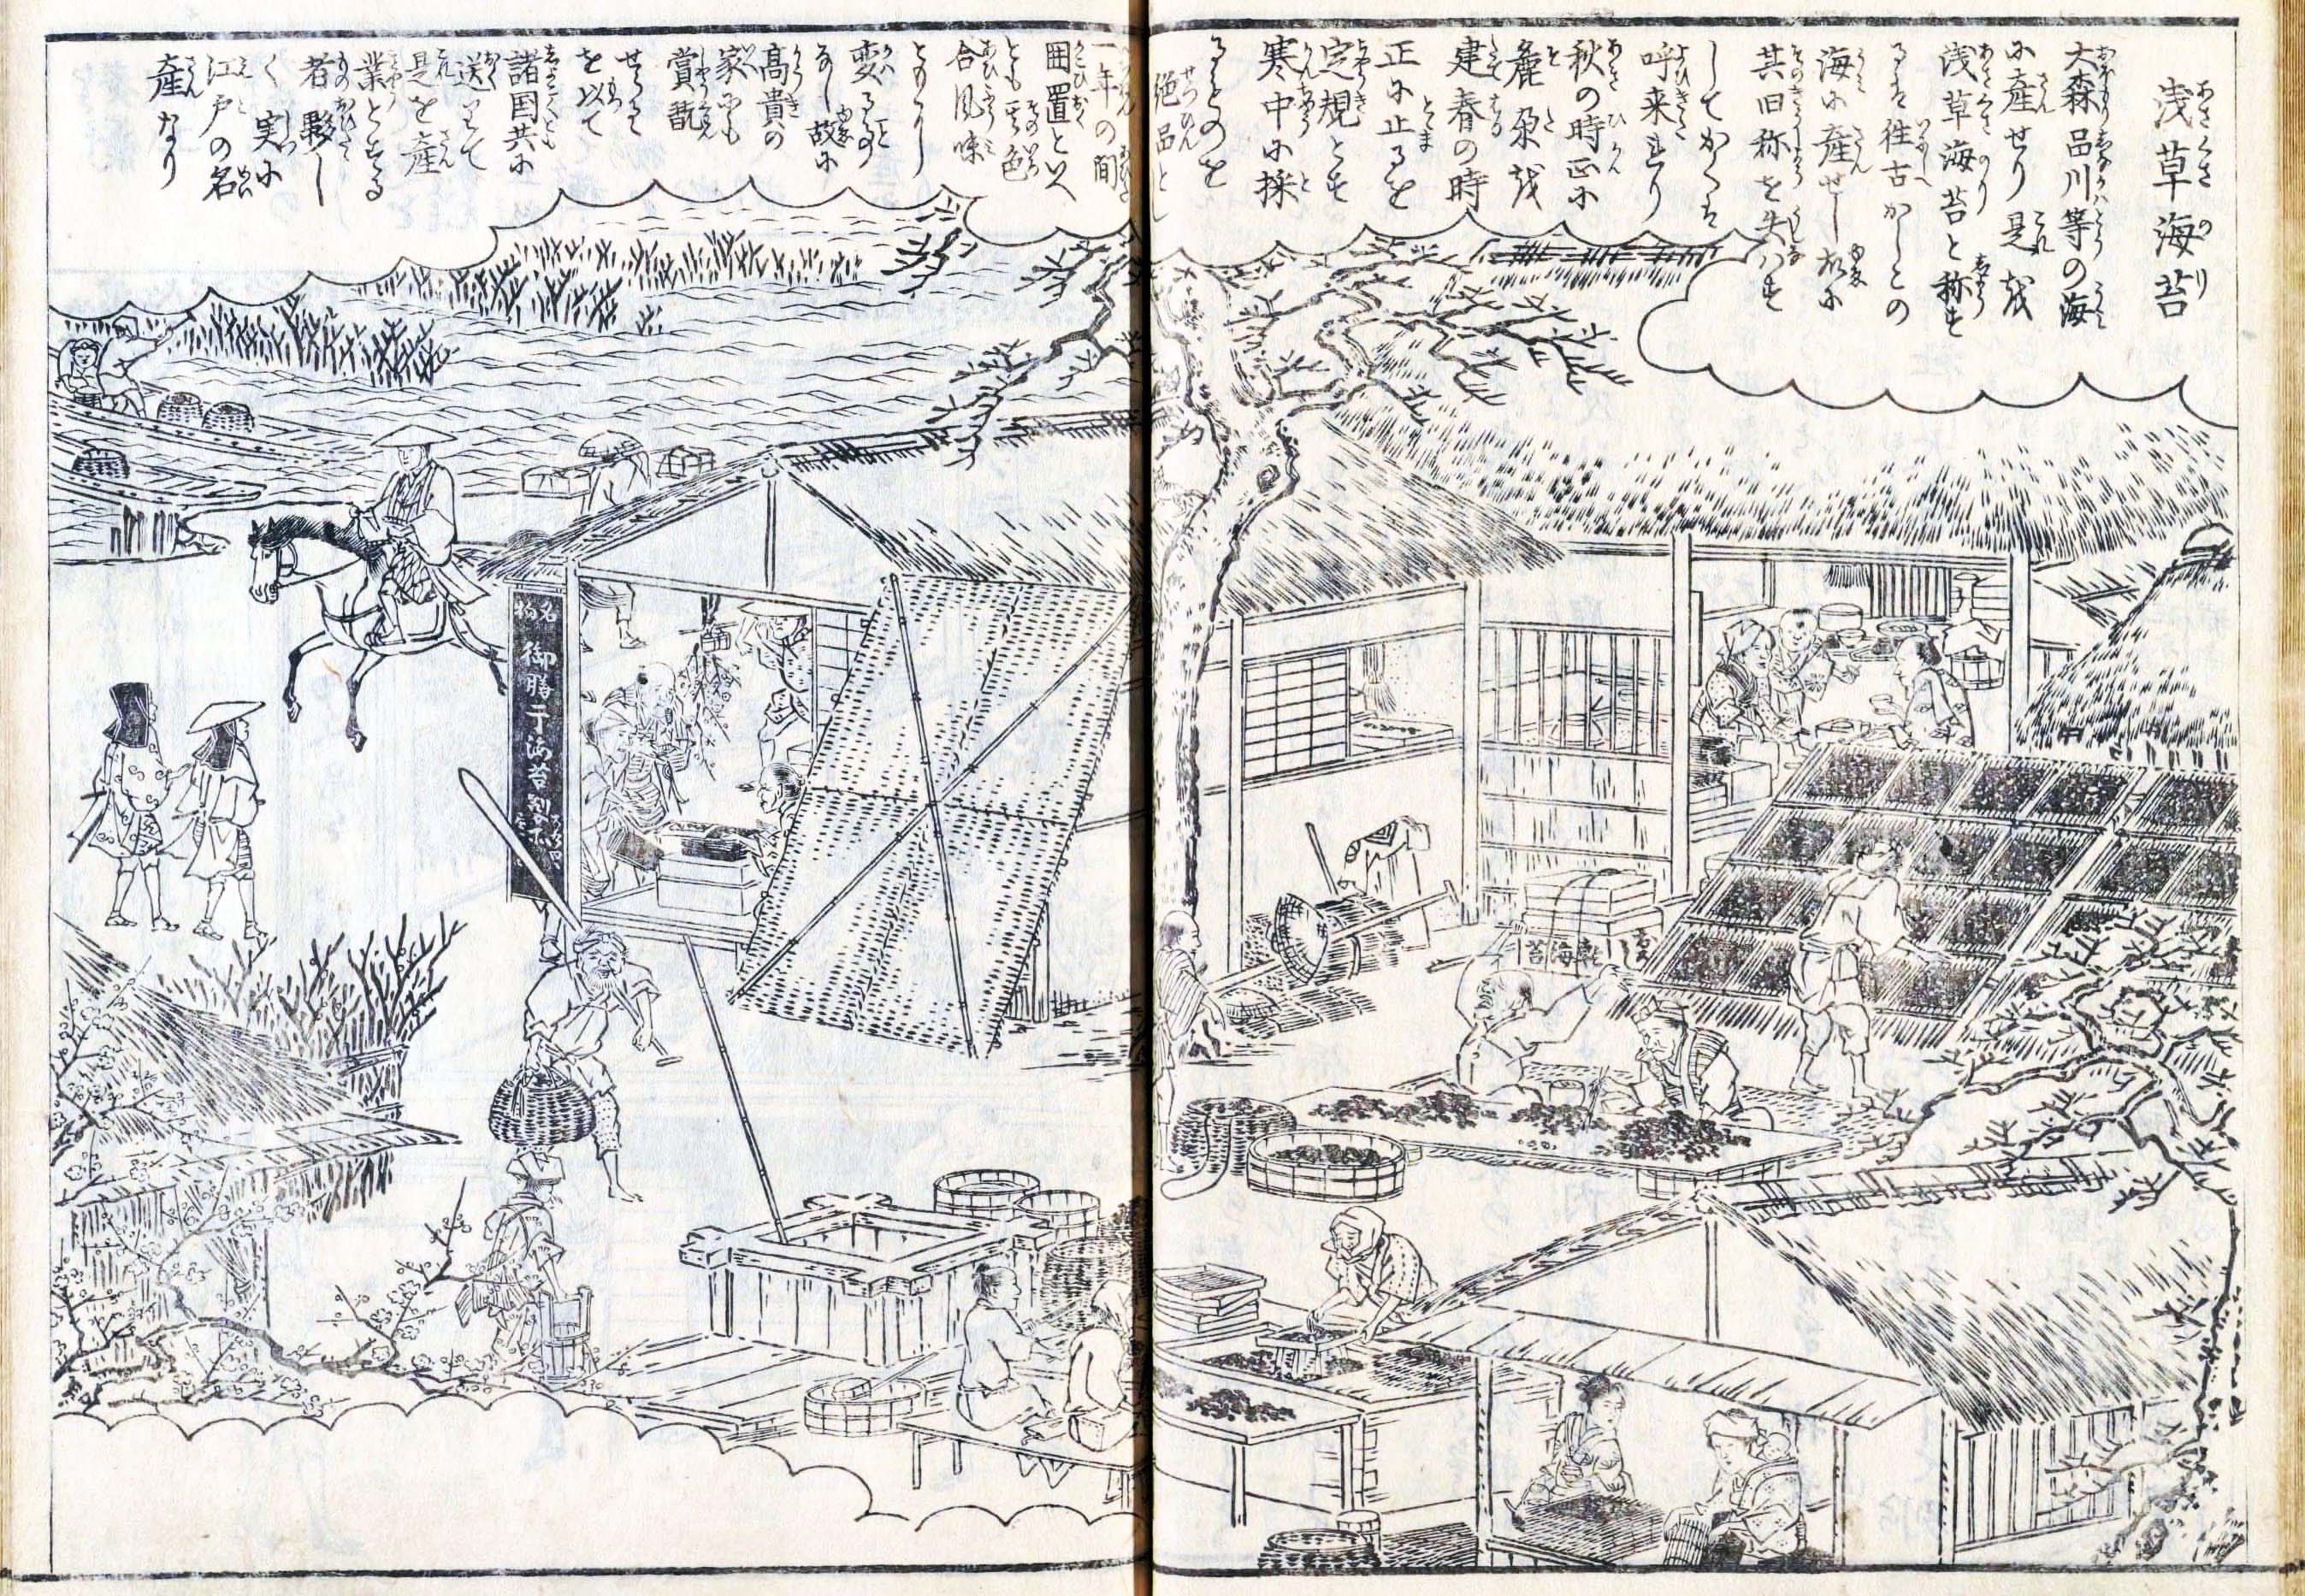 浅草海苔
大森品川等の海
に産せり是を
浅草海苔と称す
るは往古かしこの
海に産せし故に
其旧称を失ハす
してかくは
呼来れり
秋の時正に
麁朶を
建春の時
正に止るを
定規とす
寒中に採
るものを
絶品とし
一年の間
囲置といへ
とも其色
合風味
ともに
変る事
なし故に
高貴の
家にも
賞翫
せらるゝ
を以て
諸国共に
送りて
是を産
業とする
者夥し
く実に
江戸の名
産なり
名物
御膳干海苔製所
乾海苔